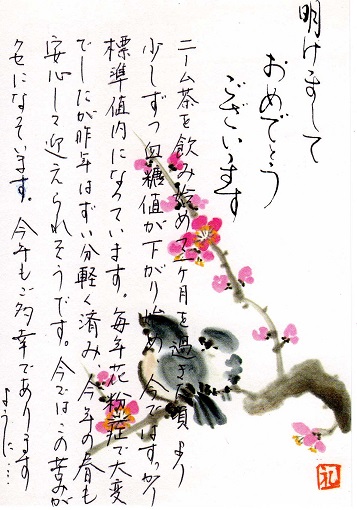 明けまして
おめでとう
ございます
ニーム茶を飲み始めて一ヶ月を過ぎた頃より
少しずつ血糖値が下がり始め、今ではすっかり
標準値内になっています。毎年花粉症で大変
でしたが昨年はずい分軽く済み、今年の春も
安心して迎えられそうです。今ではこの苦みが
クセになっています。今年もご多幸であります
ように…